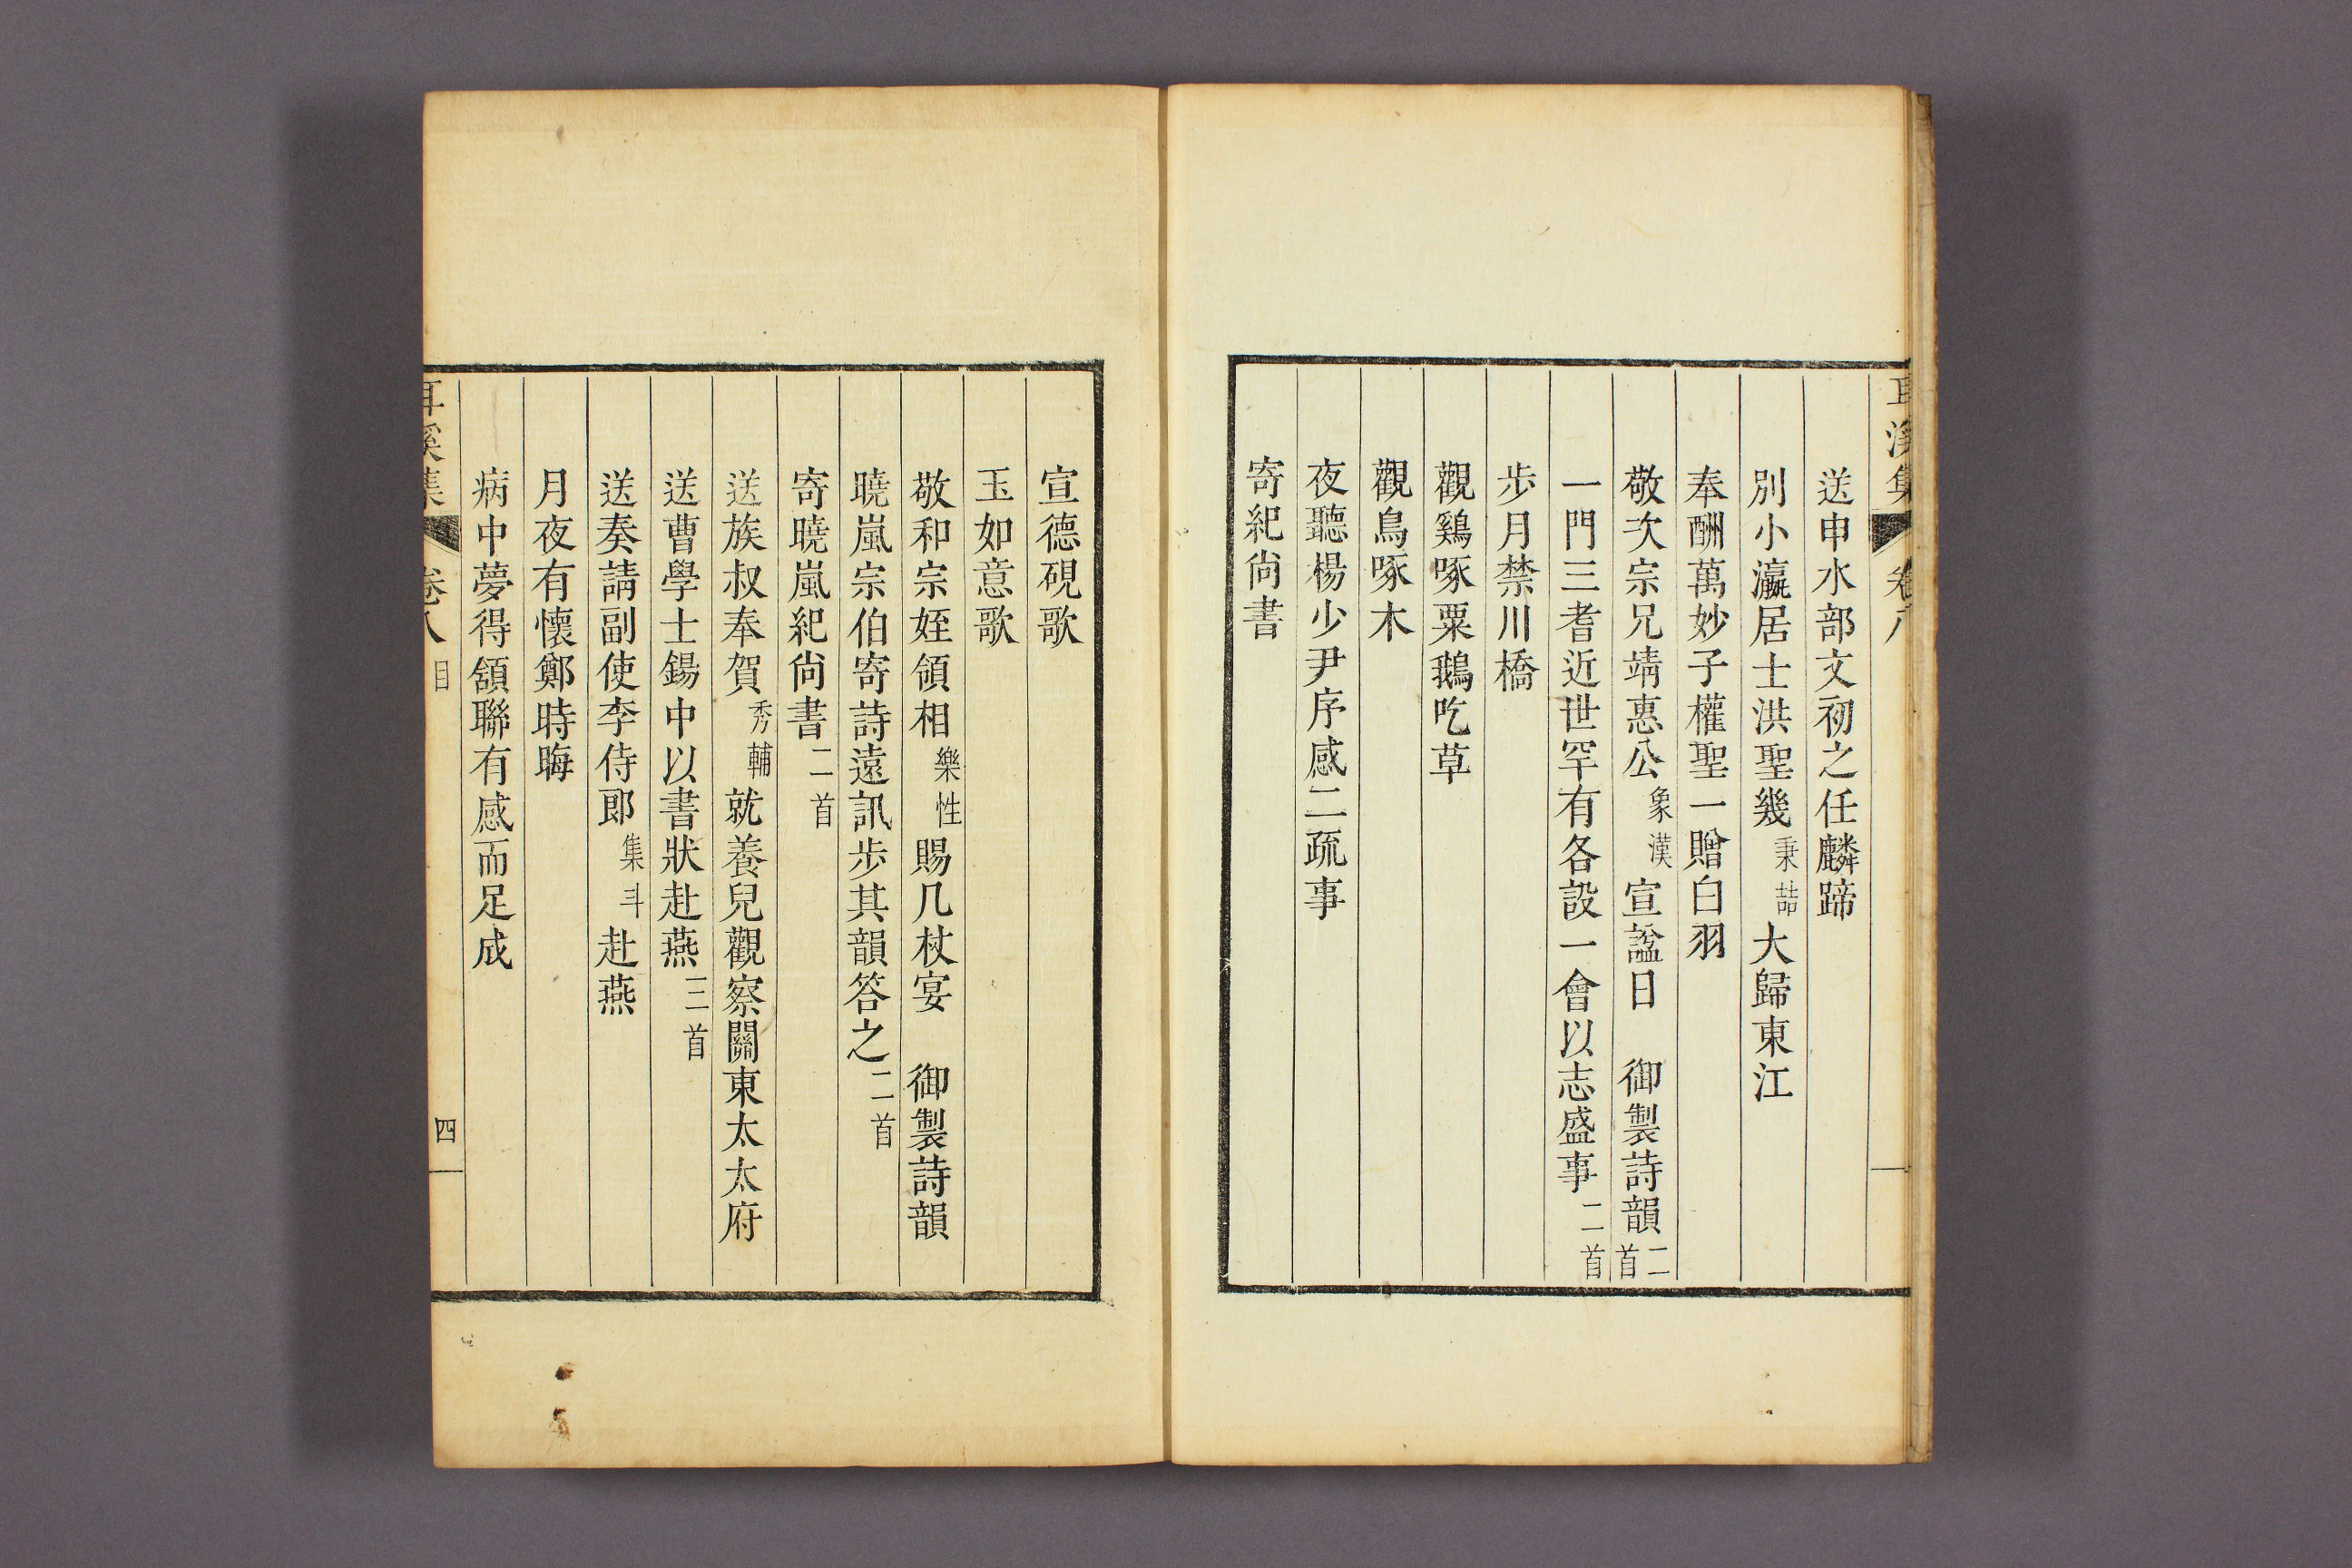 耳溪集 卷八
送申水部文初之任麟蹄
別小瀛居士洪聖幾秉喆大歸東江
奉酬萬妙子權聖一贈白羽
敬次宗兄靖惠公象漢宣諡日　御製詩韻二首
一門三耆近世罕有各設一會以志盛事二首
步月禁川橋
觀鷄啄粟鵝吃草
觀鳥啄木
夜聽楊少尹序感二疏事
寄紀尙書
宣德硯歌
玉如意歌
敬和宗姪領相樂性賜几杖宴　御製詩韻
曉嵐宗伯寄詩遠訊步其韻答之二首
寄曉嵐紀尙書二首
送族叔奉賀秀輔就養兒觀察關東太太府
送曹學士鍚中以書狀赴燕三首
送奏請副使李侍郎集斗赴燕
月夜有懷鄭時晦
病中夢得頷聯有感而足成
耳溪集 卷八 目 四